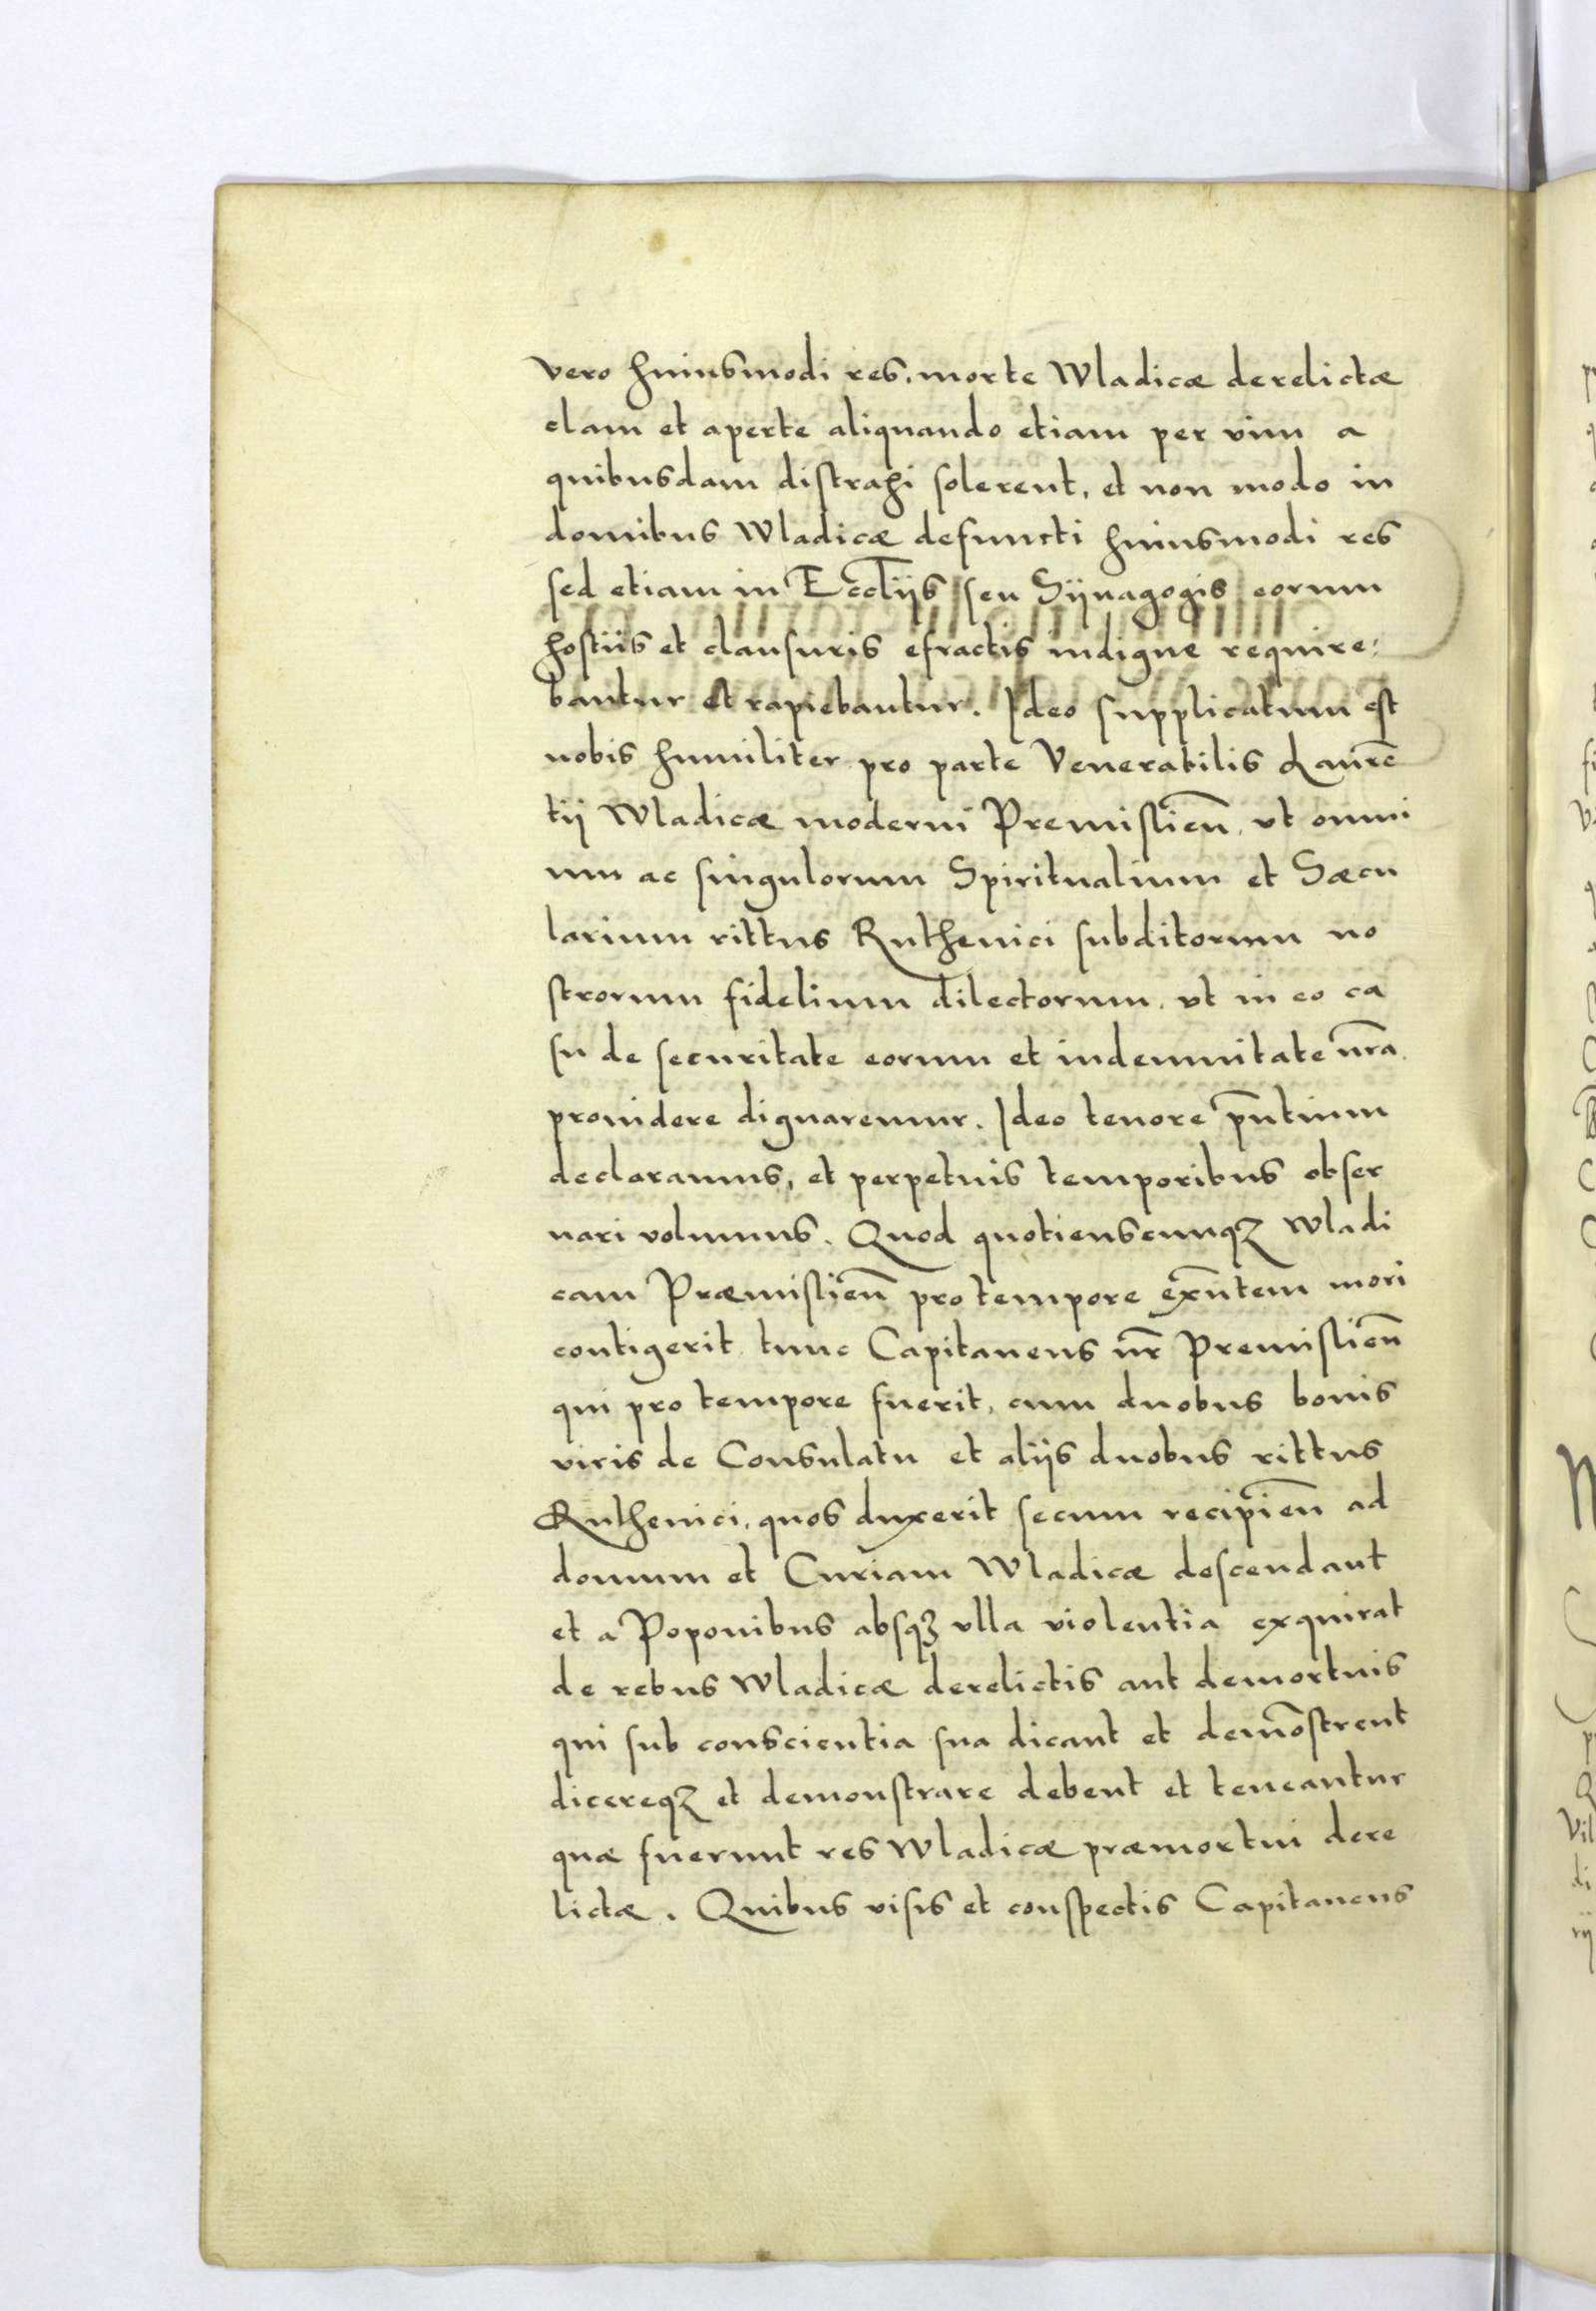 vero huiusmodi res, morte Wladicæ derelictæ
clam et aperte aliquando etiam per vim a
quibusdam distrahi solerent, et non modo in
domibus Wladicæ defuncti huiusmodi res
sed etiam in Eccl̄ijs seu Sÿnagogis eorum
hostiis et clausuris efractis indigne require:
bantur et rapiebantur. Ideo supplicatum est
nobis humiliter pro parte Venerabilis Laurē
tij Wladicæ moderni Premislień, vt omni
um ac singulorum Spiritualium et Sæcu
larium rittus Ruthenici subditorum no
strorum fidelium dilectorum, vt in eo ca
su de securitate eorum et indemnitate nr̄a
prouidere dignaremur. Ideo tenore pn̄tium
declaramus, et perpetuis temporibus obser
uari volumus. Quod quotienscunqȝ Wladi
cam Præmislień pro tempore exn̄tem mori
contigerit tunc Capitaneus nr̄ Premislień
qui pro tempore fuerit, cum duobus bonis
viris de Consulatu et alijs duobus rittus
Ruthenici, quos duxerit secum recipień ad
domum et Curiam Wladicæ descendant
et a Poponibus absqȝ vlla violentia exquirat
de rebus Wladicæ derelictis aut demortuis
qui sub conscientia sua dicant et demōstrent
dicereqȝ et demonstrare debent et teneantur
quæ fuerunt res Wladicæ præmortui dere
lictæ. Quibus visis et conspectis Capitaneus